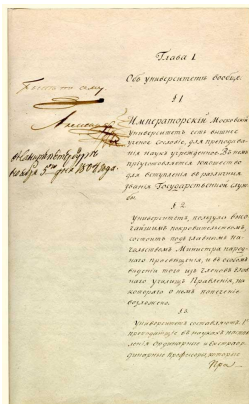 Глава I.
Объ университетѣ вообще.
§ 1
Быть по сему
Александръ
въ Санктпетербургѣ
Ноября 5го дня 1804 года.
Императорскій Московскій
Университетъ есть вышнее
ученое сословіе, для преподава
нія наукъ учрежденное. Въ немъ
приуготовляется юношество
для вступленія въ различныя
званія Государственной служ
бы.
§ 2.
Университетъ, пользуясь высо
чайшимъ покровительствомъ,
состоитъ подъ главнымъ на
чальствомъ Министра народ
наго просвѣщенія, и въ особомъ
вѣденіи того изъ членовъ главна
го училищъ Правленія, на
котораго о немъ попеченіе
возложено.
§ 3.
Университетъ составляютъ: 1е
преподающіе въ наукахъ настав
ленія Ординарные и Экстраор
динарные Профессоры, которые